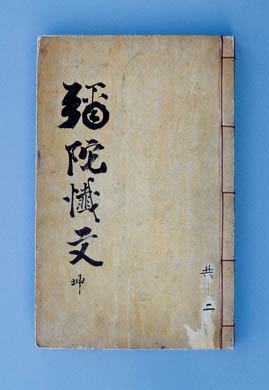 彌陀懺文
坤
共二